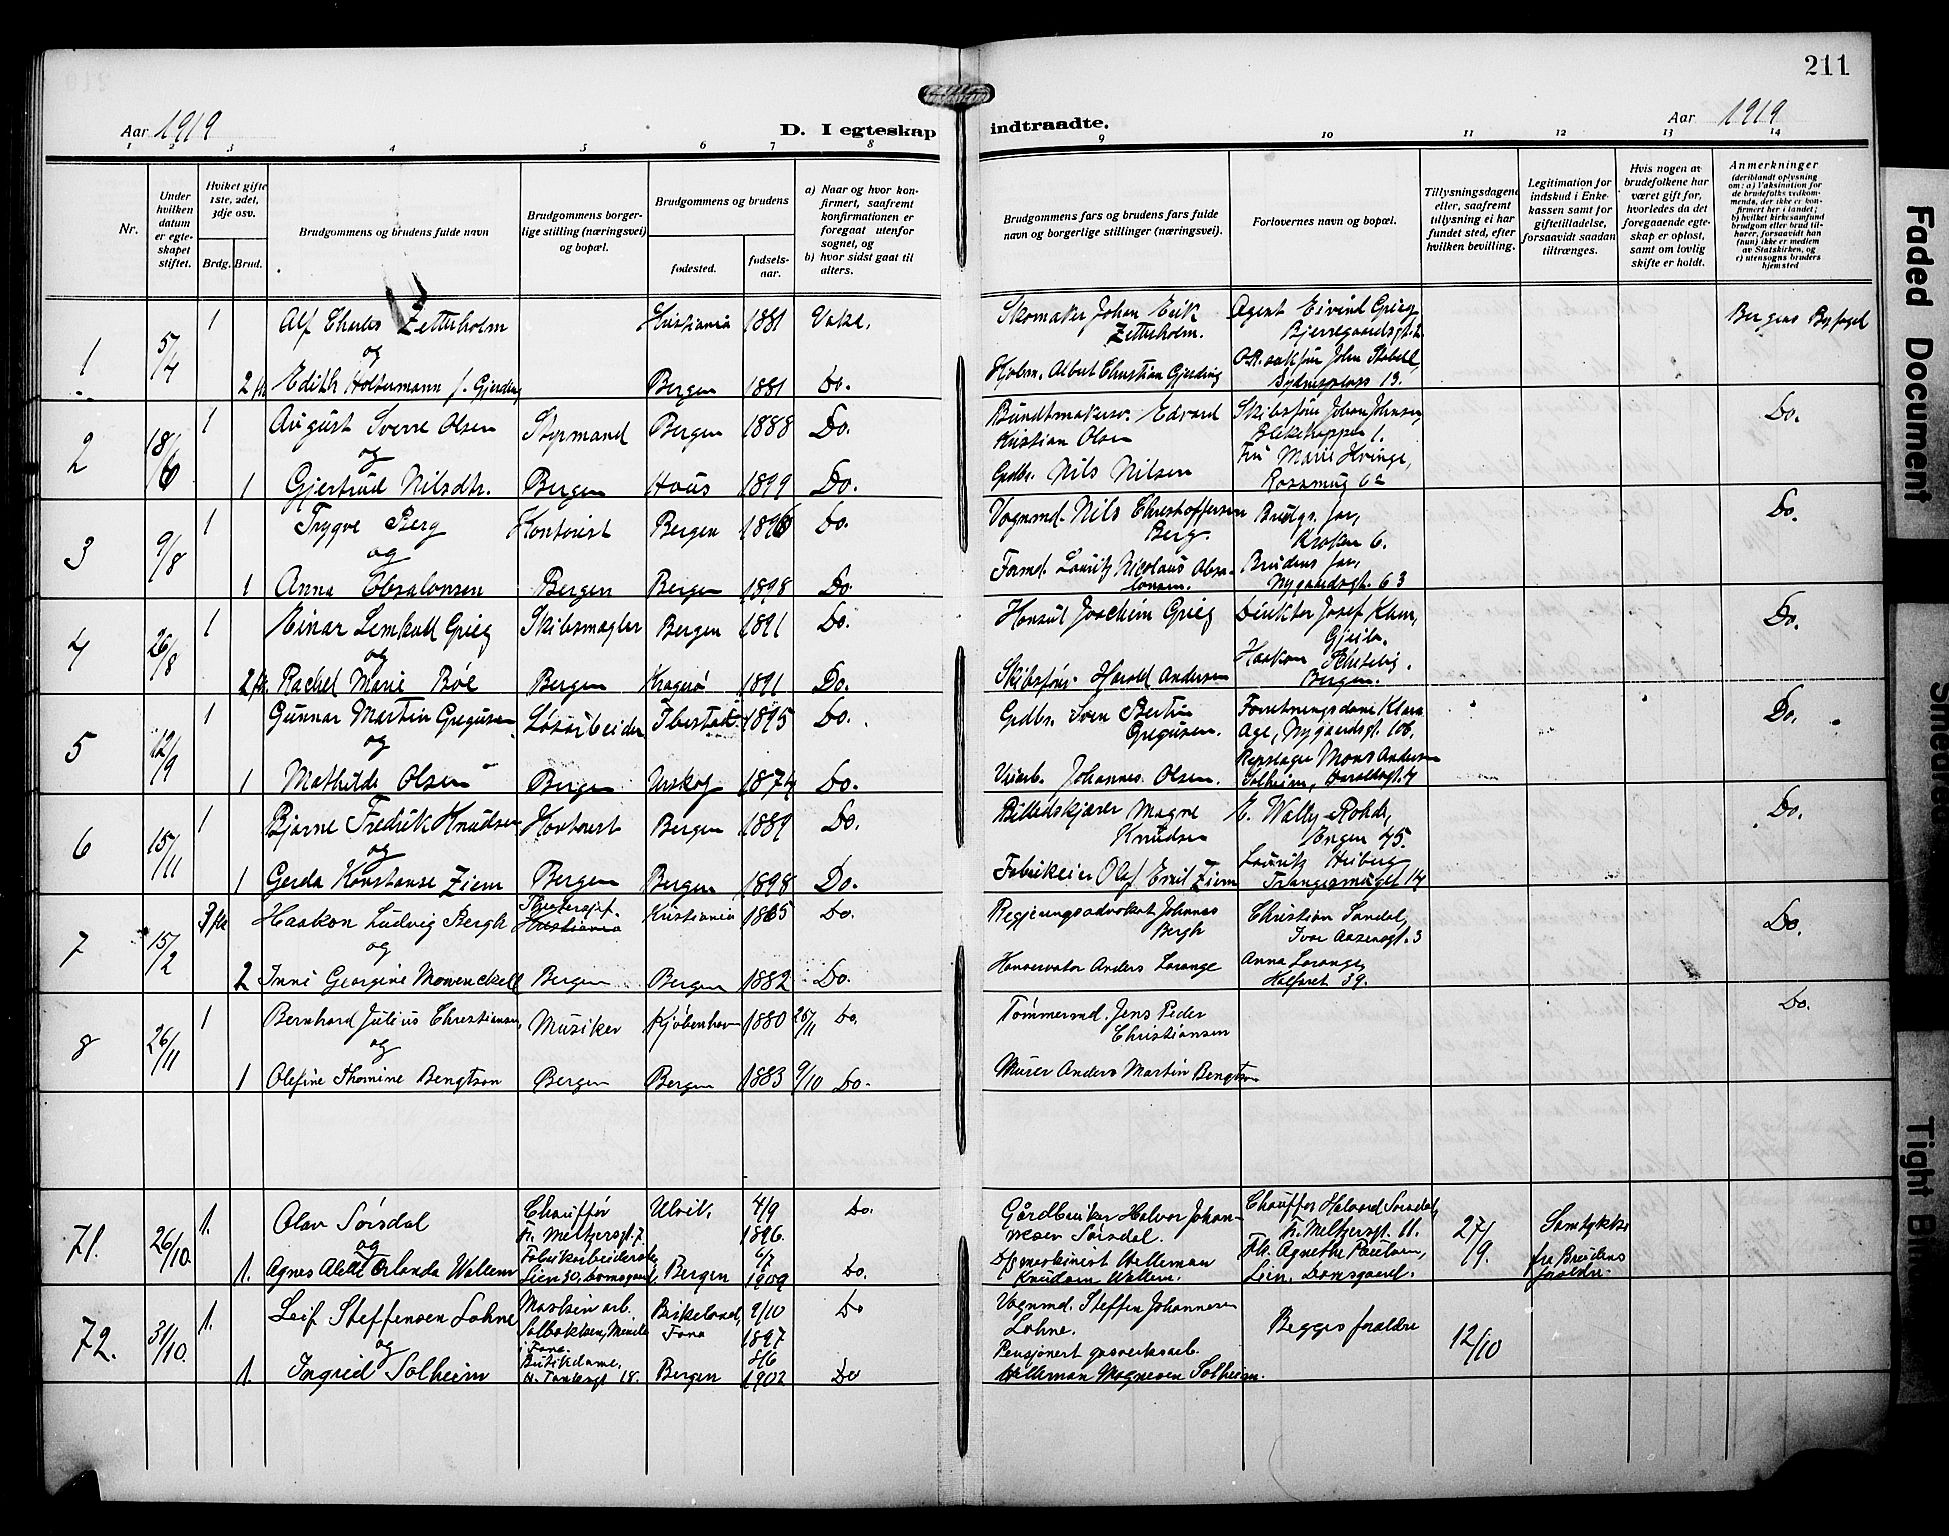 211
Aar 1919
D. I egteskap indtraadte.
Aar 1919
1 2 3 4 5 6 7 8 9 10 11 12 13 14
Nr.
Under hvilken datum er egteskapet stiftet.
Hviket gifte 1ste, 2det, 3dje osv.
Brdg. Brud.
Brudgommens og brudens fulde navn
Brudgommens borgerlige stilling (næringsvei) og bopæl.
Brudgommens og brudens
fødested.
fødselsaar.
a) Naar og hvor konfirmert, saafremt konfirmationen er foregaat utenfor sognet, og
b) hvor sidst gaat til alters.
Brudgommens fars og brudens fars fulde navn og borgerlige stillinger (næringsvei).
Forlovernes navn og bopæl.
Tillysningsdagene eller, saafremt tillysning ei har fundet sted, efter hvilken bevilling.
Legitimation for indskud i Enkekassen samt for giftetilladelse, forsaavidt saadan tiltrænges.
Hvis nogen av brudefolkene har været gift før, hvorledes da det foregaaende egteskap er opløst, samt om lovlig skifte er holdt.
Anmerkninger
(deriblandt oplysning om: a) Vaksination for de brudefolks vedkommende, der ikke er konfirmert her i landet; b) hvilket kirkesamfund brudgom eller brud tilhører, forsaavidt han (hun) ikke er medlem av Statskirken, og c) utensogns bruders hjemsted
1 5/4 1 Alf Charles Zetterholm Kristiania 1881 Vaks. Skomaker Johan Erik Zetterholm. Agent Eivind Grieg Bjerregaardsgt. 2 Bergens Byfogd
og
2 fk Edith Holtermann f. Gjerding Bergen 1881 Do. Kjøbm. Albert Christian Gjerding John Sydnesplass 13.
2 18/6 1 August Sverre Olsen Styrmand Bergen 1888 Do. Bundtmakersv. Edvard Kristian Olsen Skibsfører Johan Johnsen, 1. Do.
og
1 Gjertrud Nilsdtr. Bergen Hous 1899 Do. Gdbr. Nils Nilsen Fru Marie Kvinge,
3 9/8 1 Trygve Berg Kontorist Bergen 1896 Do. Vognmd. Nils Christoffersen Berg Brudgs. far, Kroken 6. Do.
og
1 Anna Absalonsen Bergen Bergen 1898 Do. Formd. Lauritz Nicolaus Absalonsen. Brudens far, Nygaardsgt. 63
4 26/8 1 Einar Lemkuhl Grieg Skibsmægler Bergen 1891 Do. Konsul Joachim Grieg Direktør Josef Do.
og
2 fk. Rachel Marie Bøe Bergen Kragerø 1891 Do. Skibsfører Harald Andersen Haakon Schetelig. Bergen.
5 12/9 1 Gunnar Martin Gregusen Løsarbeider Ibestad 1895 Do. Gdbr. Sven Bertin Gregusen. Forretningsdame Klara Age, Nygaardsgt. 106. Do.
og
1 Mathilde Olsen Bergen Urskog 1874 Do. Johannes Olsen. Repslager Mons Andersen Solheim, Haraldsgt. 4
6 15/11 1 Bjarne Fredrik Knudsen Kontorist Bergen 1889 Do. Billedskjærer Magne Knudsen Wally Rohde, Engen 45. Do.
og
1 Gerda Konstanse Ziem Bergen Bergen 1898 Do. Fabrikeier Olaf Emil Ziem Lauritz Heiberg 14
7 15/2 3 fk Haakon Ludvig Bergh Theatersjef. Kristiania Kristiania 1865 Do. Regjeringsadvokat Johannes Bergh Christian Sandal, Ivar Aasensgt. 3 Do.
og
2 Inni Georgine Mowinckel Bergen Bergen 1882 Do. Konservator Anders Lorange Anna Lorange, Kalfaret 39.
8 26/11 1 Bernhard Julius Christiansen Musiker Kjøbenhavn 1880 25/11 Do. Tømmermd. Jens Peder Christiansen Do.
og
1 Olefine Thomine Bengtson Bergen Bergen 1883 9/10 Do. Murer Anders Martin Bengtson
71. 26/10. 1. Olav Sørsdal Chauffør Fr. Meltzersgt. 7. Ulvik. 4/9 1896. Do. Gårdbruker Halvor Johannesen Sørsdal. Chauffør Halvard Sørsdal, Fr. Meltzersgt. 11. 27/9. Samtykke fra Brudens foreldre.
og
1. Agnes Alette Orlanda Wallem Fabrikarbeiderske, Lien 30, Damsgaard, Bergen 6/7 1909 Do. Helleman Knudsen Wallem. Frk. Agnethe Paulsen, Lien, Damsgaard.
72. 31/10. 1. Leif Steffensen Lohne Maskinarb. Solbakken, Minde i Fana. Birkeland, Fana 9/10 1897 Do Vognmd. Steffen Johannesen Lohne. Begges foreldre 12/10
og
1. Ingrid Solheim Butikdame, 18. Bergen 8/6 1902 Do Pensjonert gasverksarb. Helleman Magnesen Solheim.
Faded Document
Smeared
Tight Bi